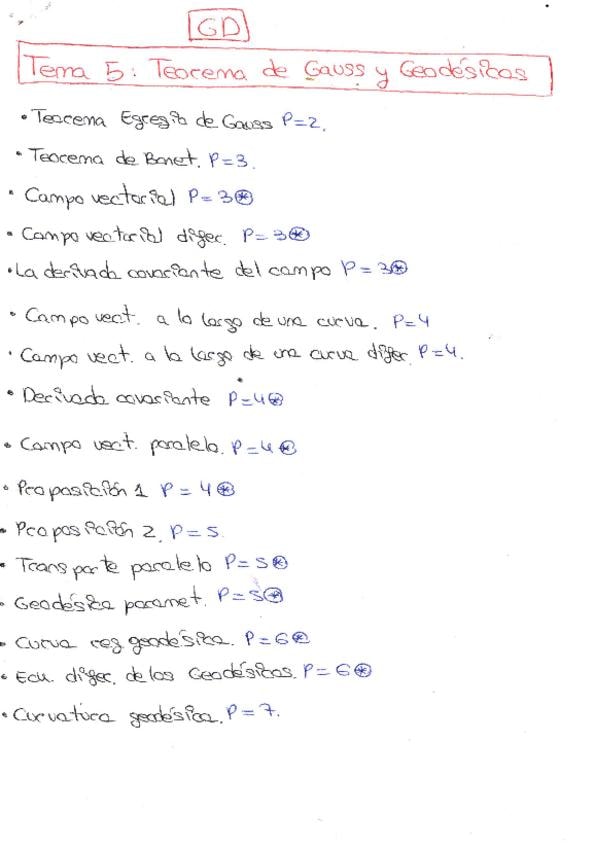 GD
Tema 5: Teorema de Gauss y Geodésicas
• Teorema Egregio de Gauss P=2.
• Teorema de Bonet. P=3.
• Campo vectorial P=3⊛
• Campo vectorial difer. P=3⊛
• La derivada covariante del campo P=3⊛
• Campo vect. a lo largo de una curva. P=4
• Campo vect. a lo largo de una curva difer. P=4.
• Derivada covariante P=4⊛
• Campo vect. paralelo. P=4⊛
• Proposición 1 P=4⊛
• Proposición 2. P=5.
• Transporte paralelo P=5⊛
• Geodésica paramet. P=5⊛
• Curva reg geodésica. P=6⊛
• Ecu. difer. de las Geodésicas. P=6⊛
• Curvatura geodésica. P=7.